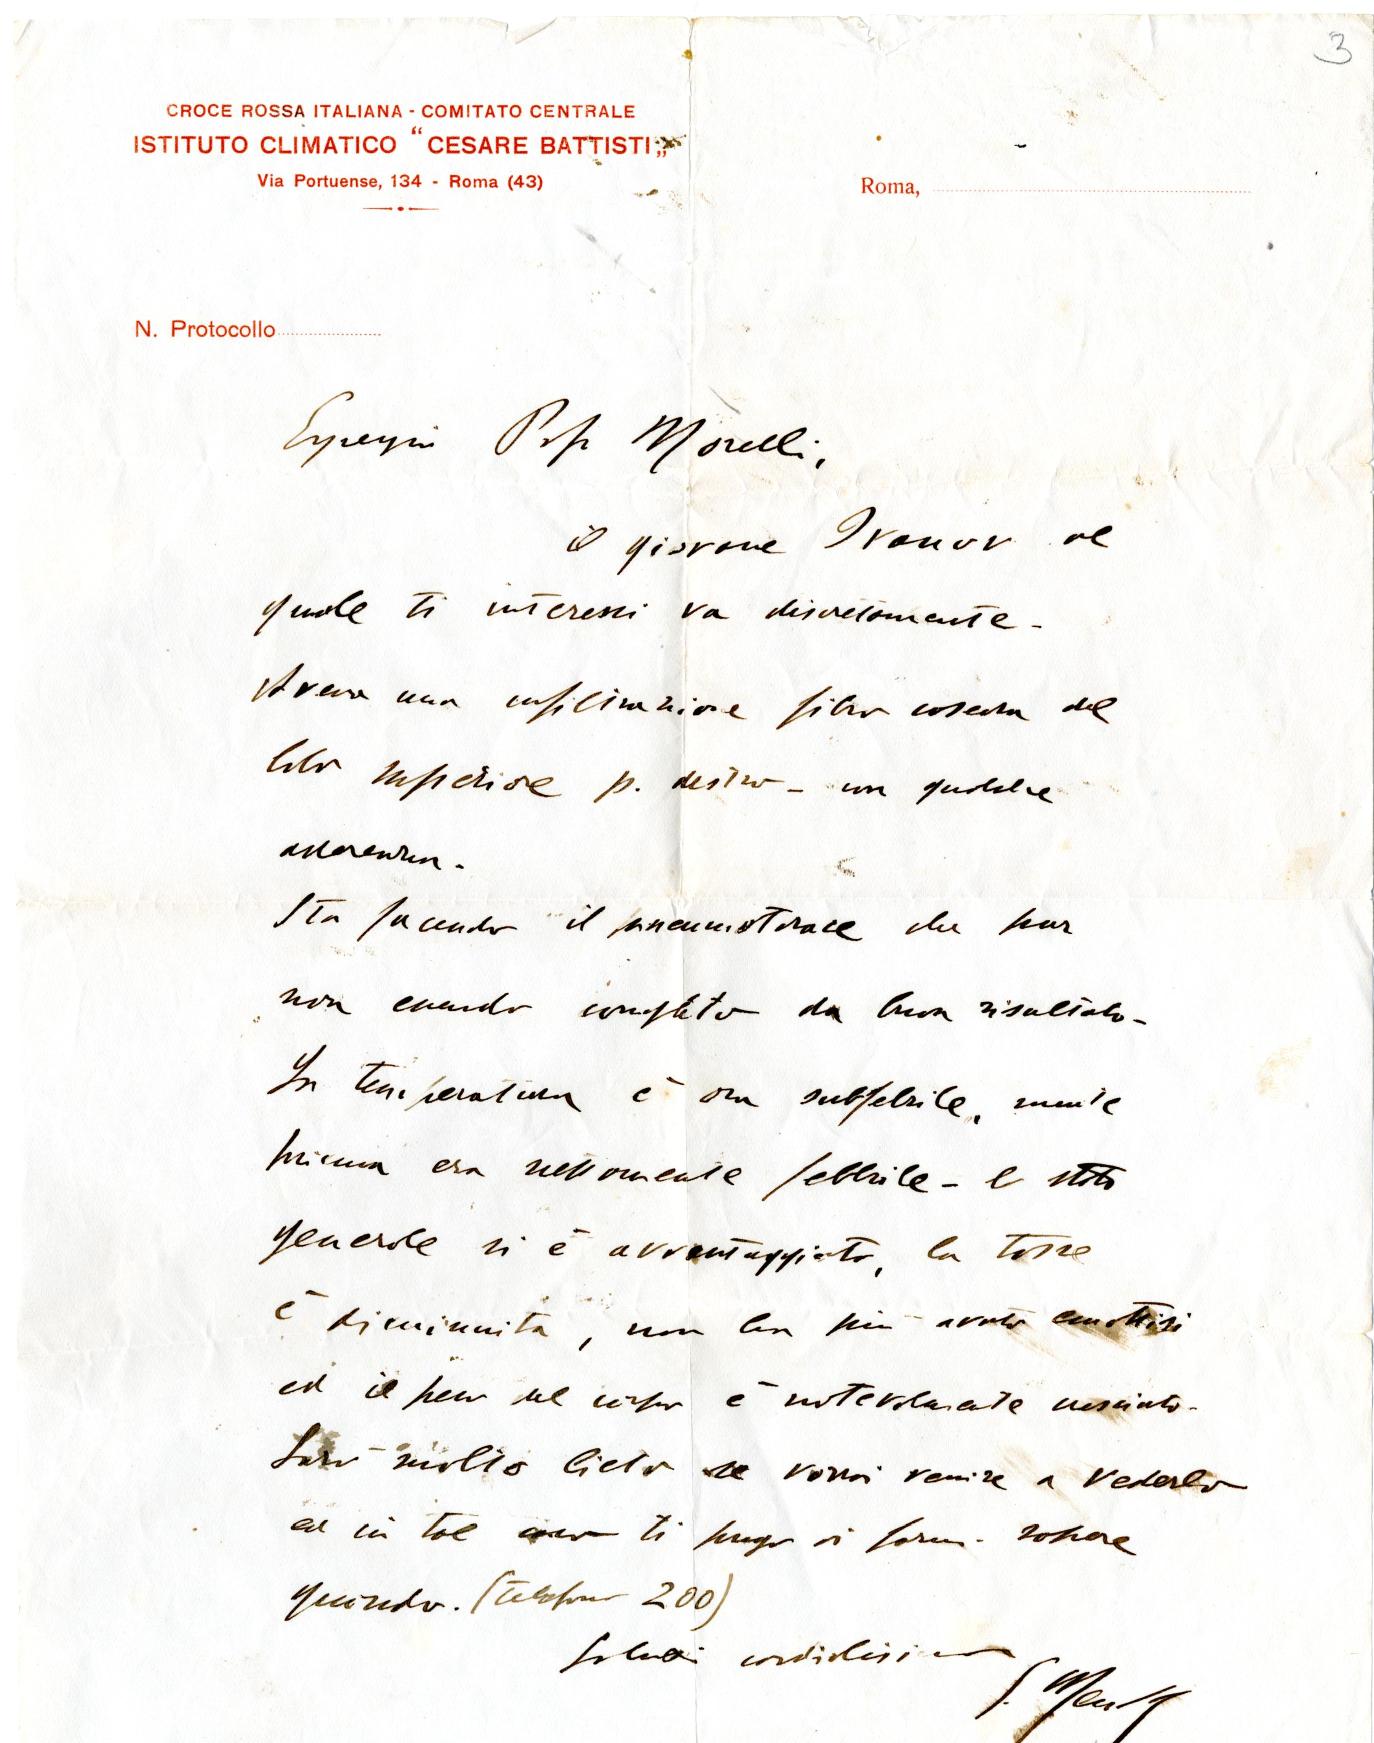 3
CROCE ROSSA ITALIANA - COMITATO CENTRALE
ISTITUTO CLIMATICO “CESARE BATTISTI„
Via Portuense, 134 - Roma (43)
Roma,
N. Protocollo
Prof Morelli,
il giovane Ivanov al
quale ti interessi va discretamente -
Aveva una infiltrazione fibro caseosa del
lobo inferiore p. destro - con qualche
aderenza -
Sta facendo il pneumotorace che pur
non essendo completo da buon risultato -
La temperatura è ora subfebrile, mentre
prima era nettamente febbrile - lo stato
generale si è avvantaggiato, la tosse
è diminuita, non ha più avuto emottisi
ed il peso del corpo è notevolmente cresciuto -
Sarò molto lieto se vorrai venire a vederlo
ed in tal caso ti prego di farmi sapere
quando. (telefono 200)
Saluti cordialissimi